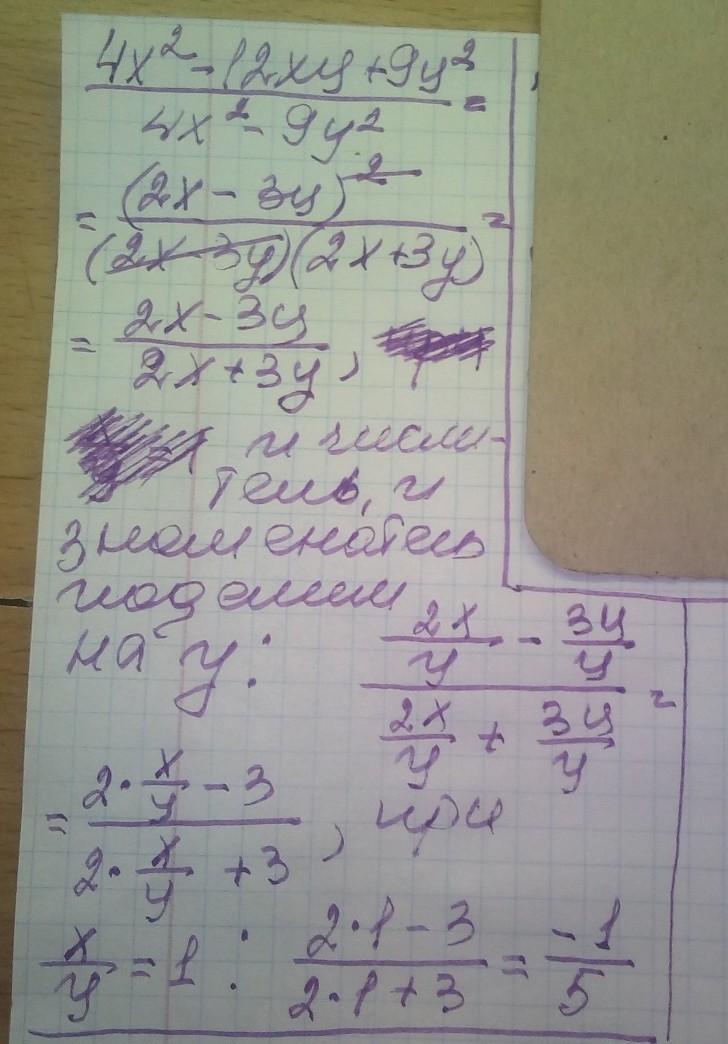 4x² - 12xy + 9y² / 4x² - 9y² =
= (2x - 3y)² / (2x - 3y)(2x + 3y) =
= 2x - 3y / 2x + 3y ,
и числи-
тель, и
знаменатель
поделим
на y: 2x/y - 3y/y / 2x/y + 3y/y =
= 2·x/y - 3 / 2·x/y + 3 , при
x/y = 1 : 2·1 - 3 / 2·1 + 3 = -1/5